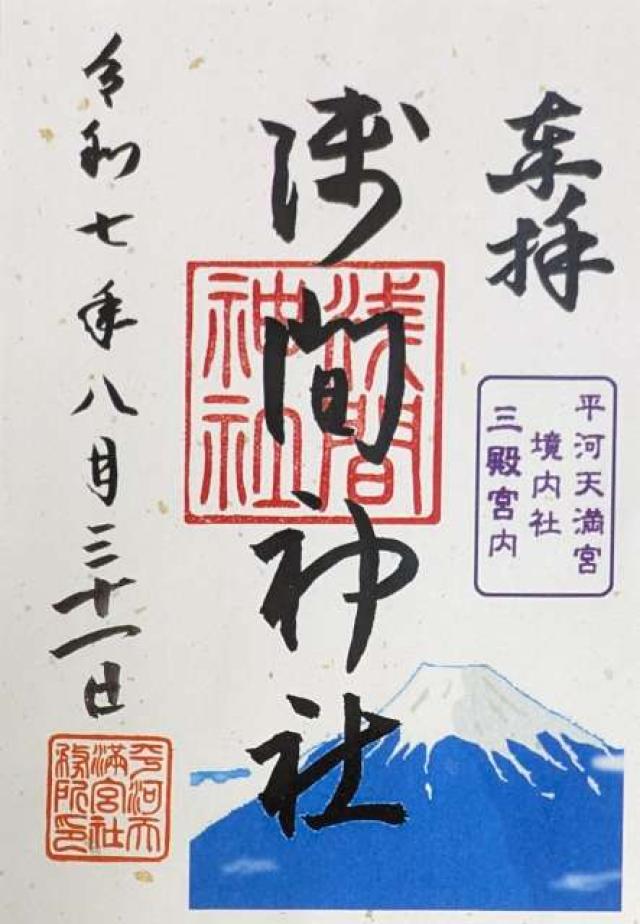 奉拝
平河天満宮
境内社
三殿宮内
浅間神社
浅間
神社
令和七年八月三十一日
平河天
満宮社
務所印